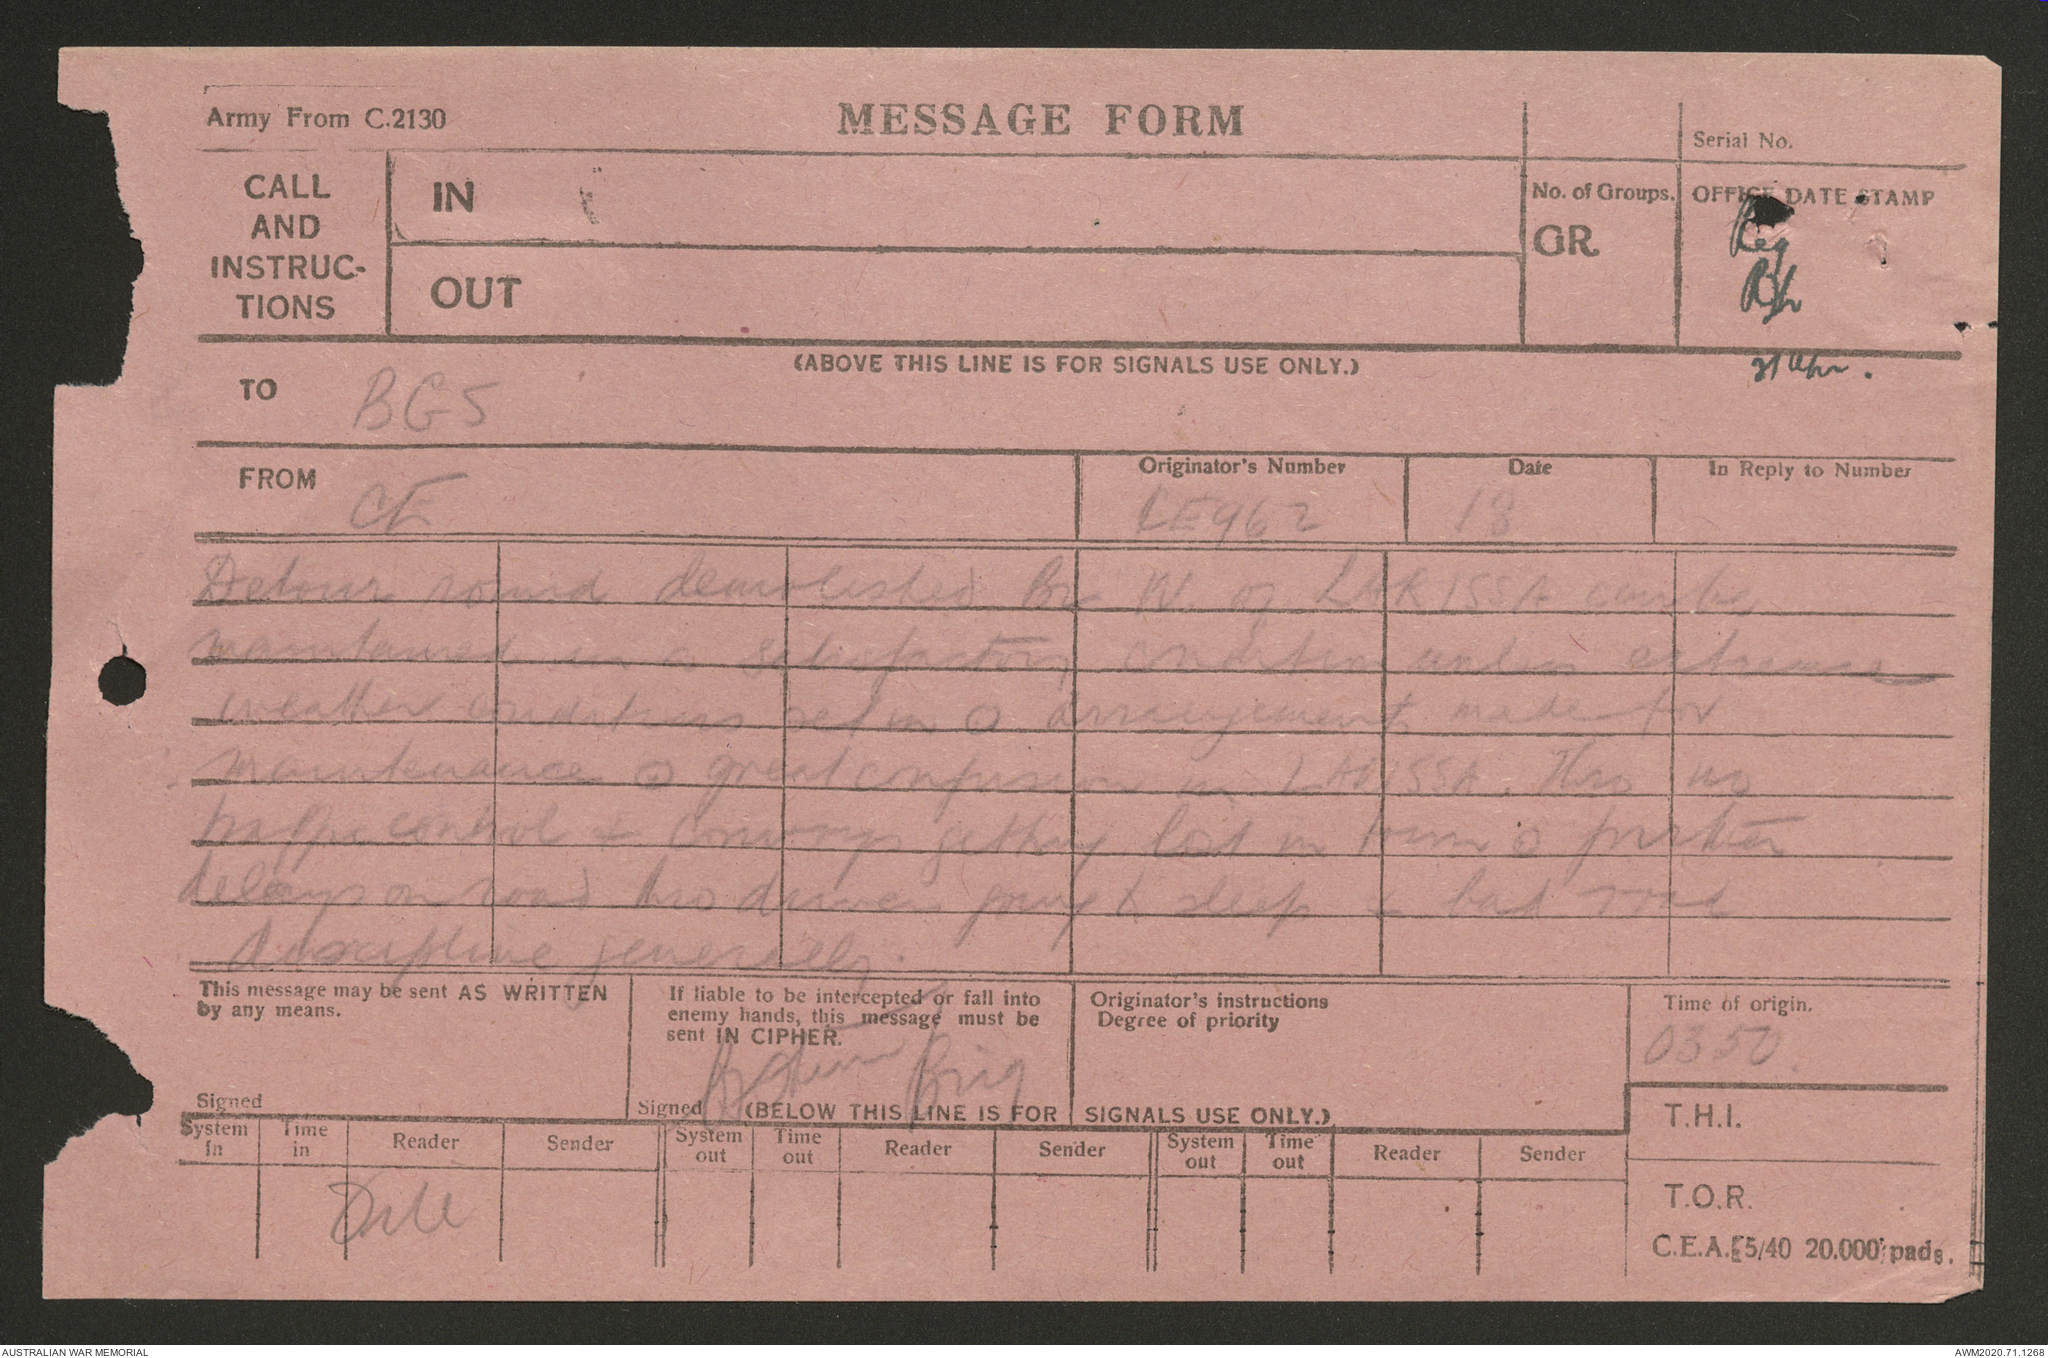 Army From C.2130
MESSAGE FORM
Serial No.
CALL
AND
INSTRUC-
TIONS
IN
OUT
No. of Groups.
GR.
OFFICE DATE STAMP
(ABOVE THIS LINE IS FOR SIGNALS USE ONLY.)
21 Apr.
TO
BGS
FROM
CE
Originator's Number
Date
In Reply to Number
LE962
18
Detour round demolished W. of LARISSA can be
maintained in a satisfactory condition unless extreme
weather conditions set in o arrangements made for
maintenance o great confusion in LARISSA. Thro no
traffic control & convoys getting lost in town o further
delays on road thro drivers going to sleep & bad road
discipline generally.
This message may be sent AS WRITTEN
by any means.
Signed
If liable to be intercepted or fall into
enemy hands, this message must be
sent IN CIPHER.
Brig
Signed
(BELOW THIS LINE IS FOR SIGNALS USE ONLY.)
Originator's instructions
Degree of priority
Time of origin.
0350.
T.H.I.
T.O.R.
System in
Time in
Reader
Sender
System out
Time out
Reader
Sender
System out
Time out
Reader
Sender
C.E.A. 5/40 20.000 pads.
AUSTRALIAN WAR MEMORIAL
AWM2020.71.1268